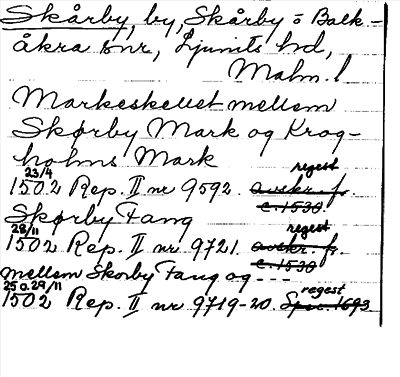 Skårby, by, Skårby o Balk-
åkra snr, Ljunits hd,
Malm. l
Markeskellet mellem
Skørby Mark og Krog-
holms Mark
23/4 regest
1502 Rep. II nr 9592. avskr. fr.
c. 1530.
Skørby Fang
28/11 regest
1502 Rep. II nr 9721. avskr. fr.
c. 1530
mellem Skorby Fang og ---
25 o. 29/11 regest
1502 Rep. II nr 9719-20. Spec. 1693